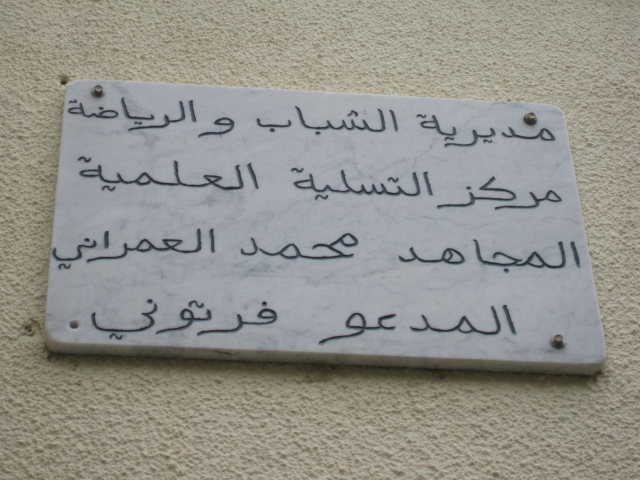 مديرية الشباب و الرياضة
مركز التسلية العلمية
المجاهد محمد العمراني
المدعو فريتوني